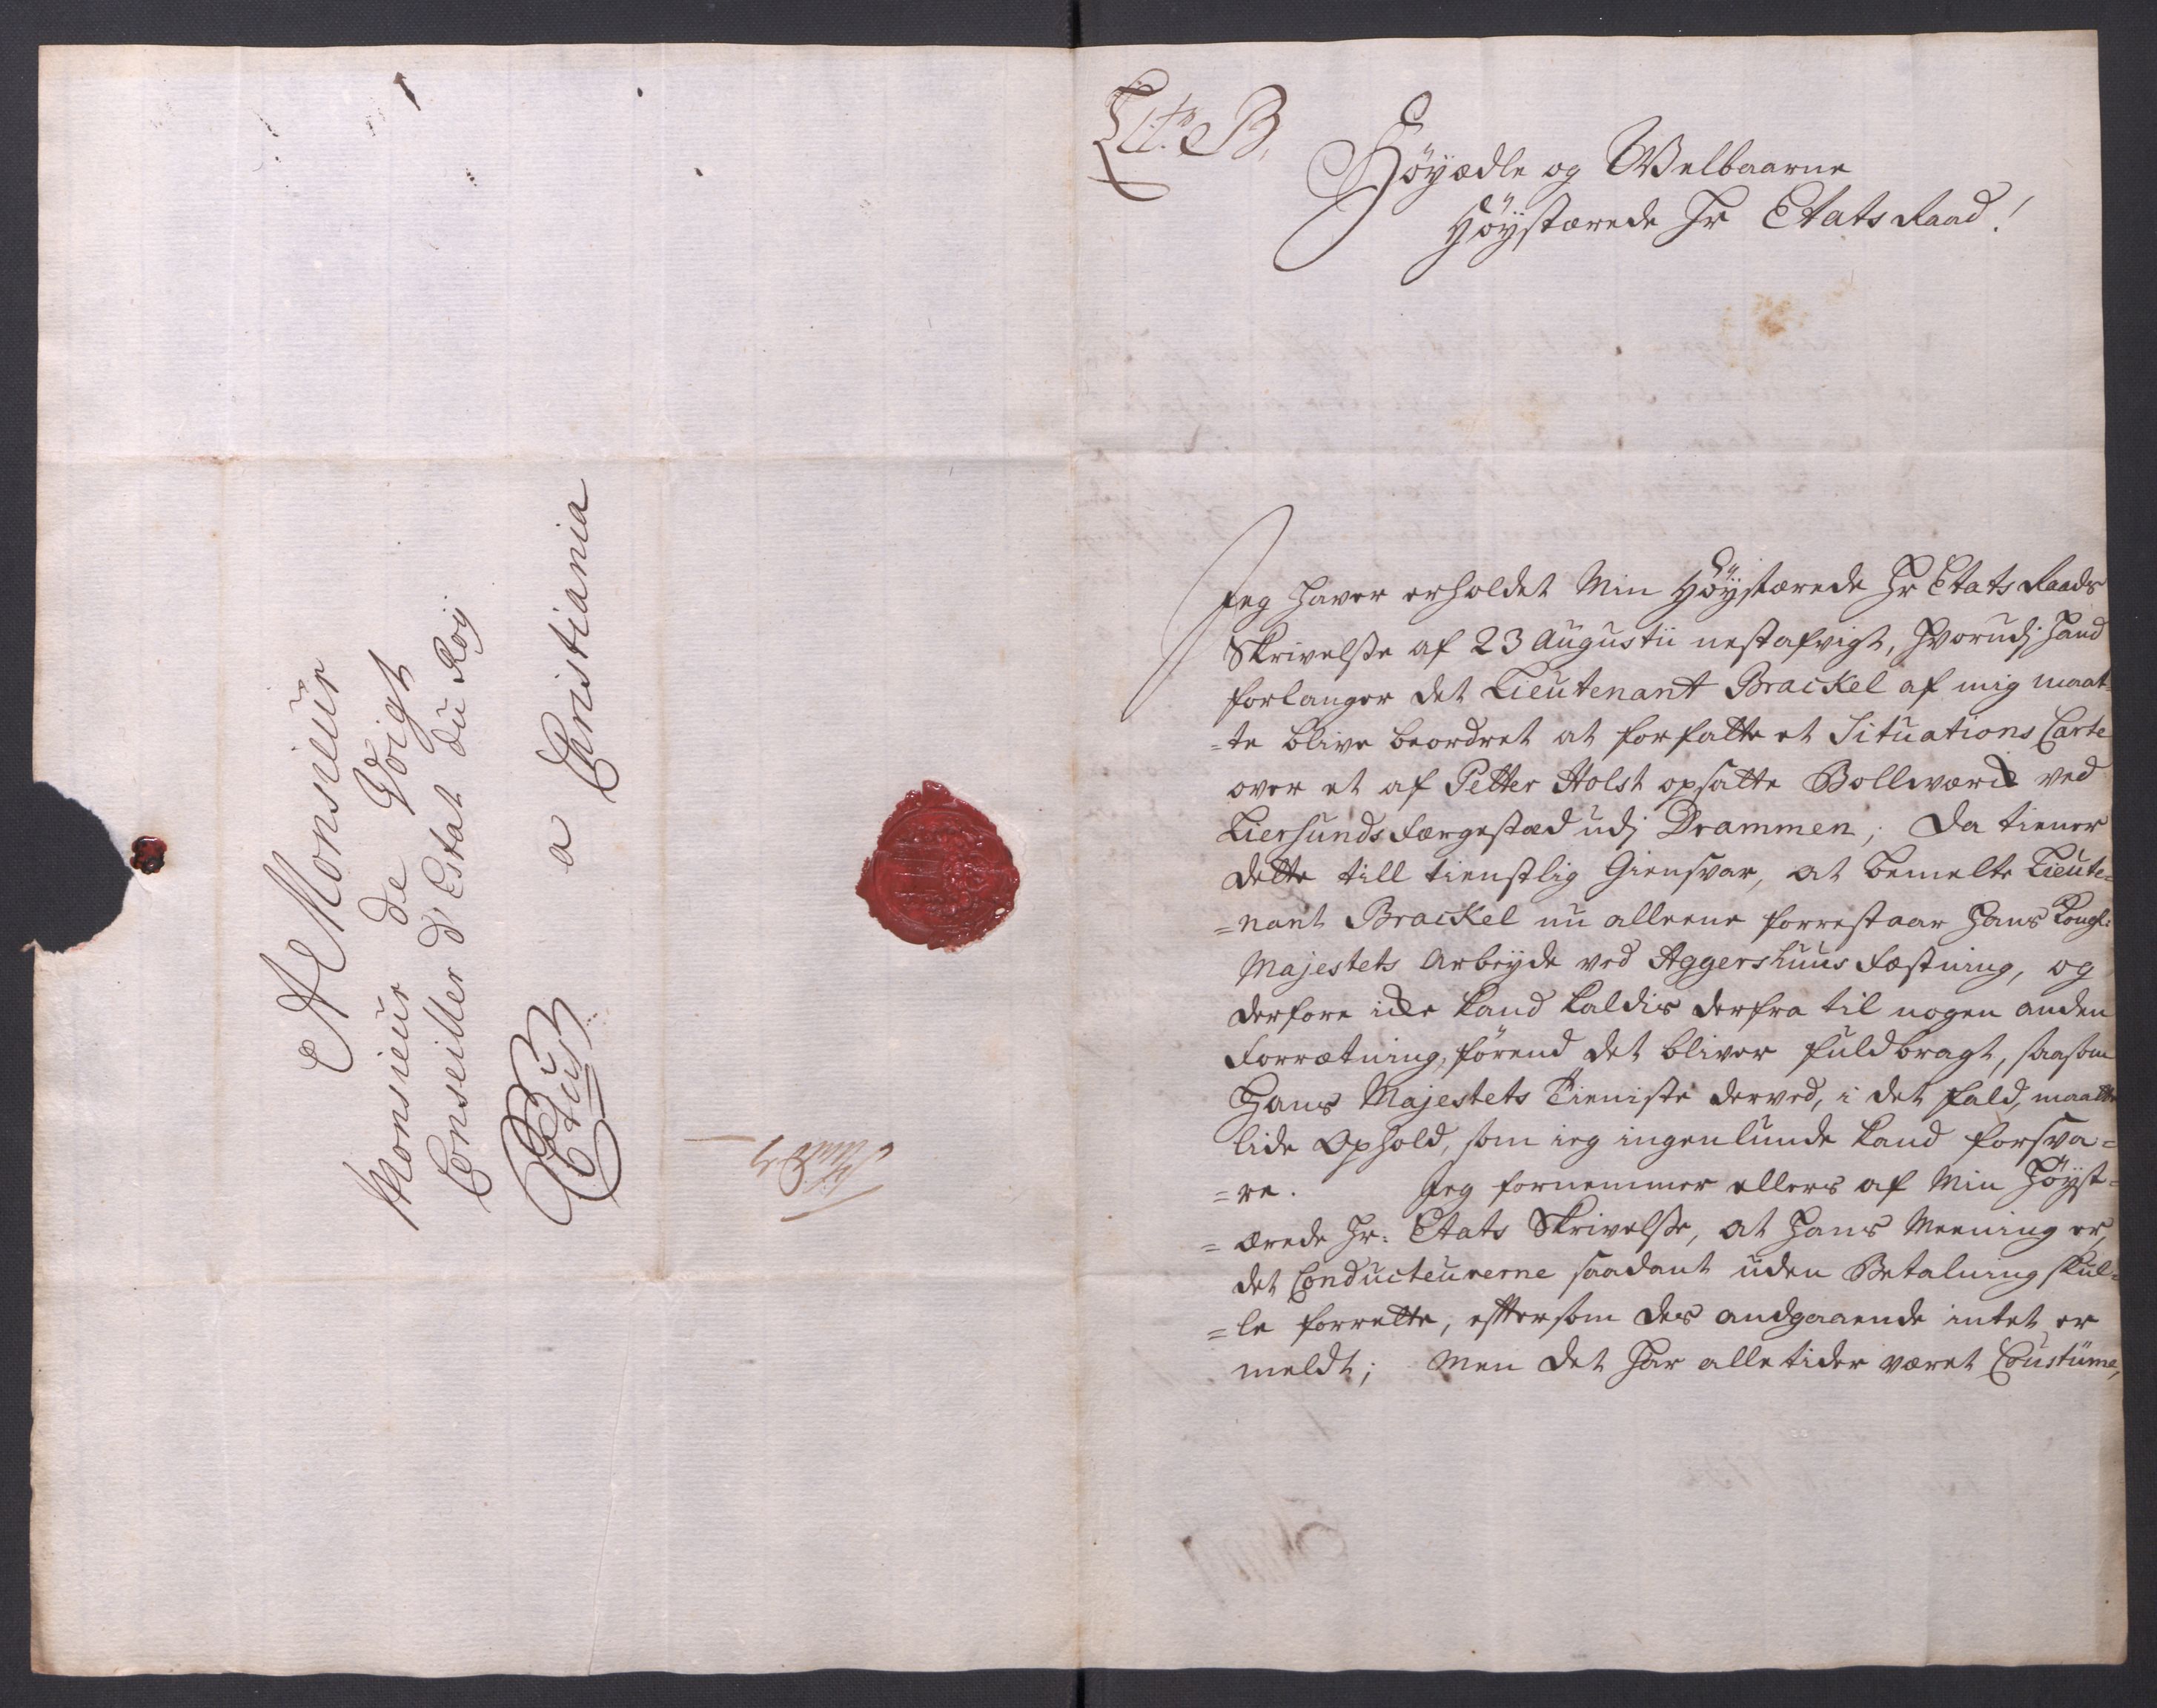 A Monsieur
Monsieur de Voigt
Conseiller d'Estat du Roÿ
a Christiania
Litr. B.
Höyædle og Welbaarne
Höÿstærede Hr Etats Raad!
Jeg haver erholdet Min Höÿstærede Hr Etats Raads
Skrivelsse af 23 Augustii nestafvigt, hvorudj hand
forlanger det Lieutenant Brackel af mig maat-
=te blive beordret at forfatte et Situations Carte
over et af Petter Holst opsatte Bollwærck ved
Liersunds færgestæd udj Drammen; Da tiener
dette till tienstlig Giensvar, at bemelte Lieute=
=nant Brackel nu alleene forrestaar Hans Kongl:
Majestets Arbeyde ved Aggershuus Fæstning, og
derfore icke kand kaldis derfra til nogen anden
Forrætning, förend det bliver fuldbragt, saasom
Hans Majestets Tieniste derved, i det fald, maatte
lide Ophold, som ieg ingenlunde kand forsva=
=re. Jeg fornemmer ellers af Min Höÿst=
=ærede Hr: Etats Skrivelsse, at hans Meening er,
det Conducteurerne saadant uden Betalning skul=
=le forrette, efftersom des andgaaende intet er
meldt; Men det har alle tider været Coustüme,